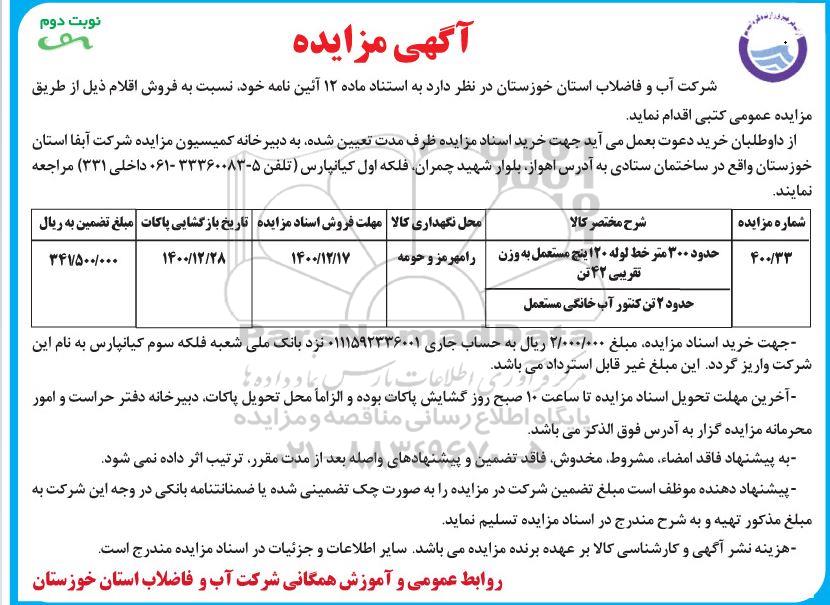 نوبت دوم
آگهی مزایده
شرکت آب و فاضلاب استان خوزستان در نظر دارد به استناد ماده ۱۲ آئین نامه خود، نسبت به فروش اقلام ذیل از طریق
مزایده عمومی کتبی اقدام نماید.
از داوطلبان خرید دعوت بعمل می آید جهت خرید اسناد مزایده ظرف مدت تعیین شده، به دبیرخانه کمیسیون مزایده شرکت آبفا استان
خوزستان واقع در ساختمان ستادی به آدرس اهواز، بلوار شهید چمران، فلکه اول کیانپارس (تلفن ۵-۳۳۳۶۰۰۸۳ -۰۶۱ داخلی ۳۳۱) مراجعه
نمایند.
شماره مزایده شرح مختصر کالا محل نگهداری کالا مهلت فروش اسناد مزایده تاریخ بازگشایی پاکات مبلغ تضمین به ریال
۴۰۰/۳۳ حدود ۳۰۰ متر خط لوله ۱۲۰ اینچ مستعمل به وزن رامهرمز و حومه ۱۴۰۰/۱۲/۱۷ ۱۴۰۰/۱۲/۲۸ ۳۴۱/۵۰۰/۰۰۰
تقریبی ۴۲ تن
حدود ۲ تن کنتور آب خانگی مستعمل
-جهت خرید اسناد مزایده، مبلغ ۲/۰۰۰/۰۰۰ ریال به حساب جاری ۰۱۱۱۵۹۲۳۳۶۰۰۱ نزد بانک ملی شعبه فلکه سوم کیانپارس به نام این
شرکت واریز گردد. این مبلغ غیر قابل استرداد می باشد.
-آخرین مهلت تحویل اسناد مزایده تا ساعت ۱۰ صبح روز گشایش پاکات بوده و الزاماً محل تحویل پاکات، دبیرخانه دفتر حراست و امور
محرمانه مزایده گزار به آدرس فوق الذکر می باشد.
-به پیشنهاد فاقد امضاء، مشروط، مخدوش، فاقد تضمین و پیشنهادهای واصله بعد از مدت مقرر، ترتیب اثر داده نمی شود.
-پیشنهاد دهنده موظف است مبلغ تضمین شرکت در مزایده را به صورت چک تضمینی شده یا ضمانتنامه بانکی در وجه این شرکت به
مبلغ مذکور تهیه و به شرح مندرج در اسناد مزایده تسلیم نماید.
-هزینه نشر آگهی و کارشناسی کالا بر عهده برنده مزایده می باشد. سایر اطلاعات و جزئیات در اسناد مزایده مندرج است.
روابط عمومی و آموزش همگانی شرکت آب و فاضلاب استان خوزستان
ParsNamadData
مرکز فرآوری اطلاعات پارس نماد داده ها
پایگاه اطلاع رسانی مناقصه و مزایده
۰۲۱-۸۸۳۴۹۶۷۰-۵